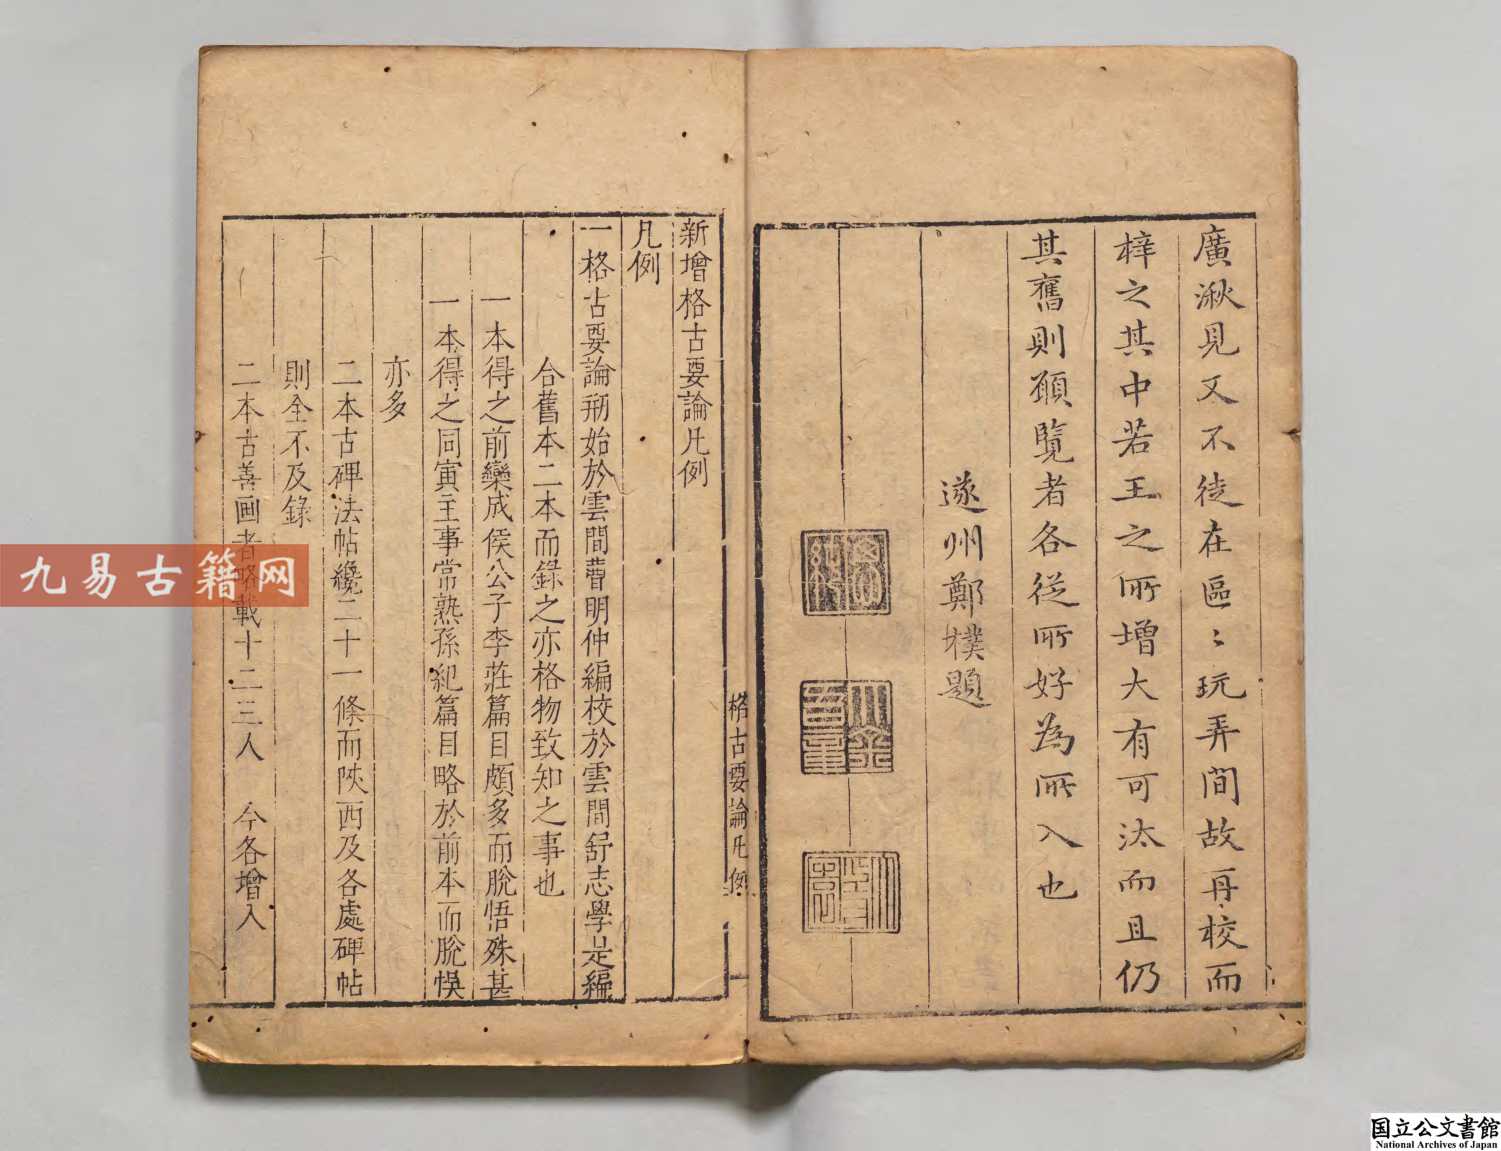 廣湫見又不徒在區〻玩弄間故再校而
梓之其中若王之所增大有可汰而且仍
其舊則顧覽者各從所好為所入也
遂州鄭樸題
格古要論凡例
新增格古要論凡例
凡例
一格古要論剏始於雲間曹明仲編校於雲間舒志學是編
合舊本二本而錄之亦格物致知之事也
一本得之前欒成侯公子李莊篇目頗多而脫悟殊甚
一本得之同寅主事常熟孫紀篇目略於前本而脫悞
亦多
二本古碑法帖纔二十一條而陝西及各處碑帖
則全不及錄
二本古善画者略載十二三人 今各增入
九易古籍网
国立公文書館
National Archives of Japan